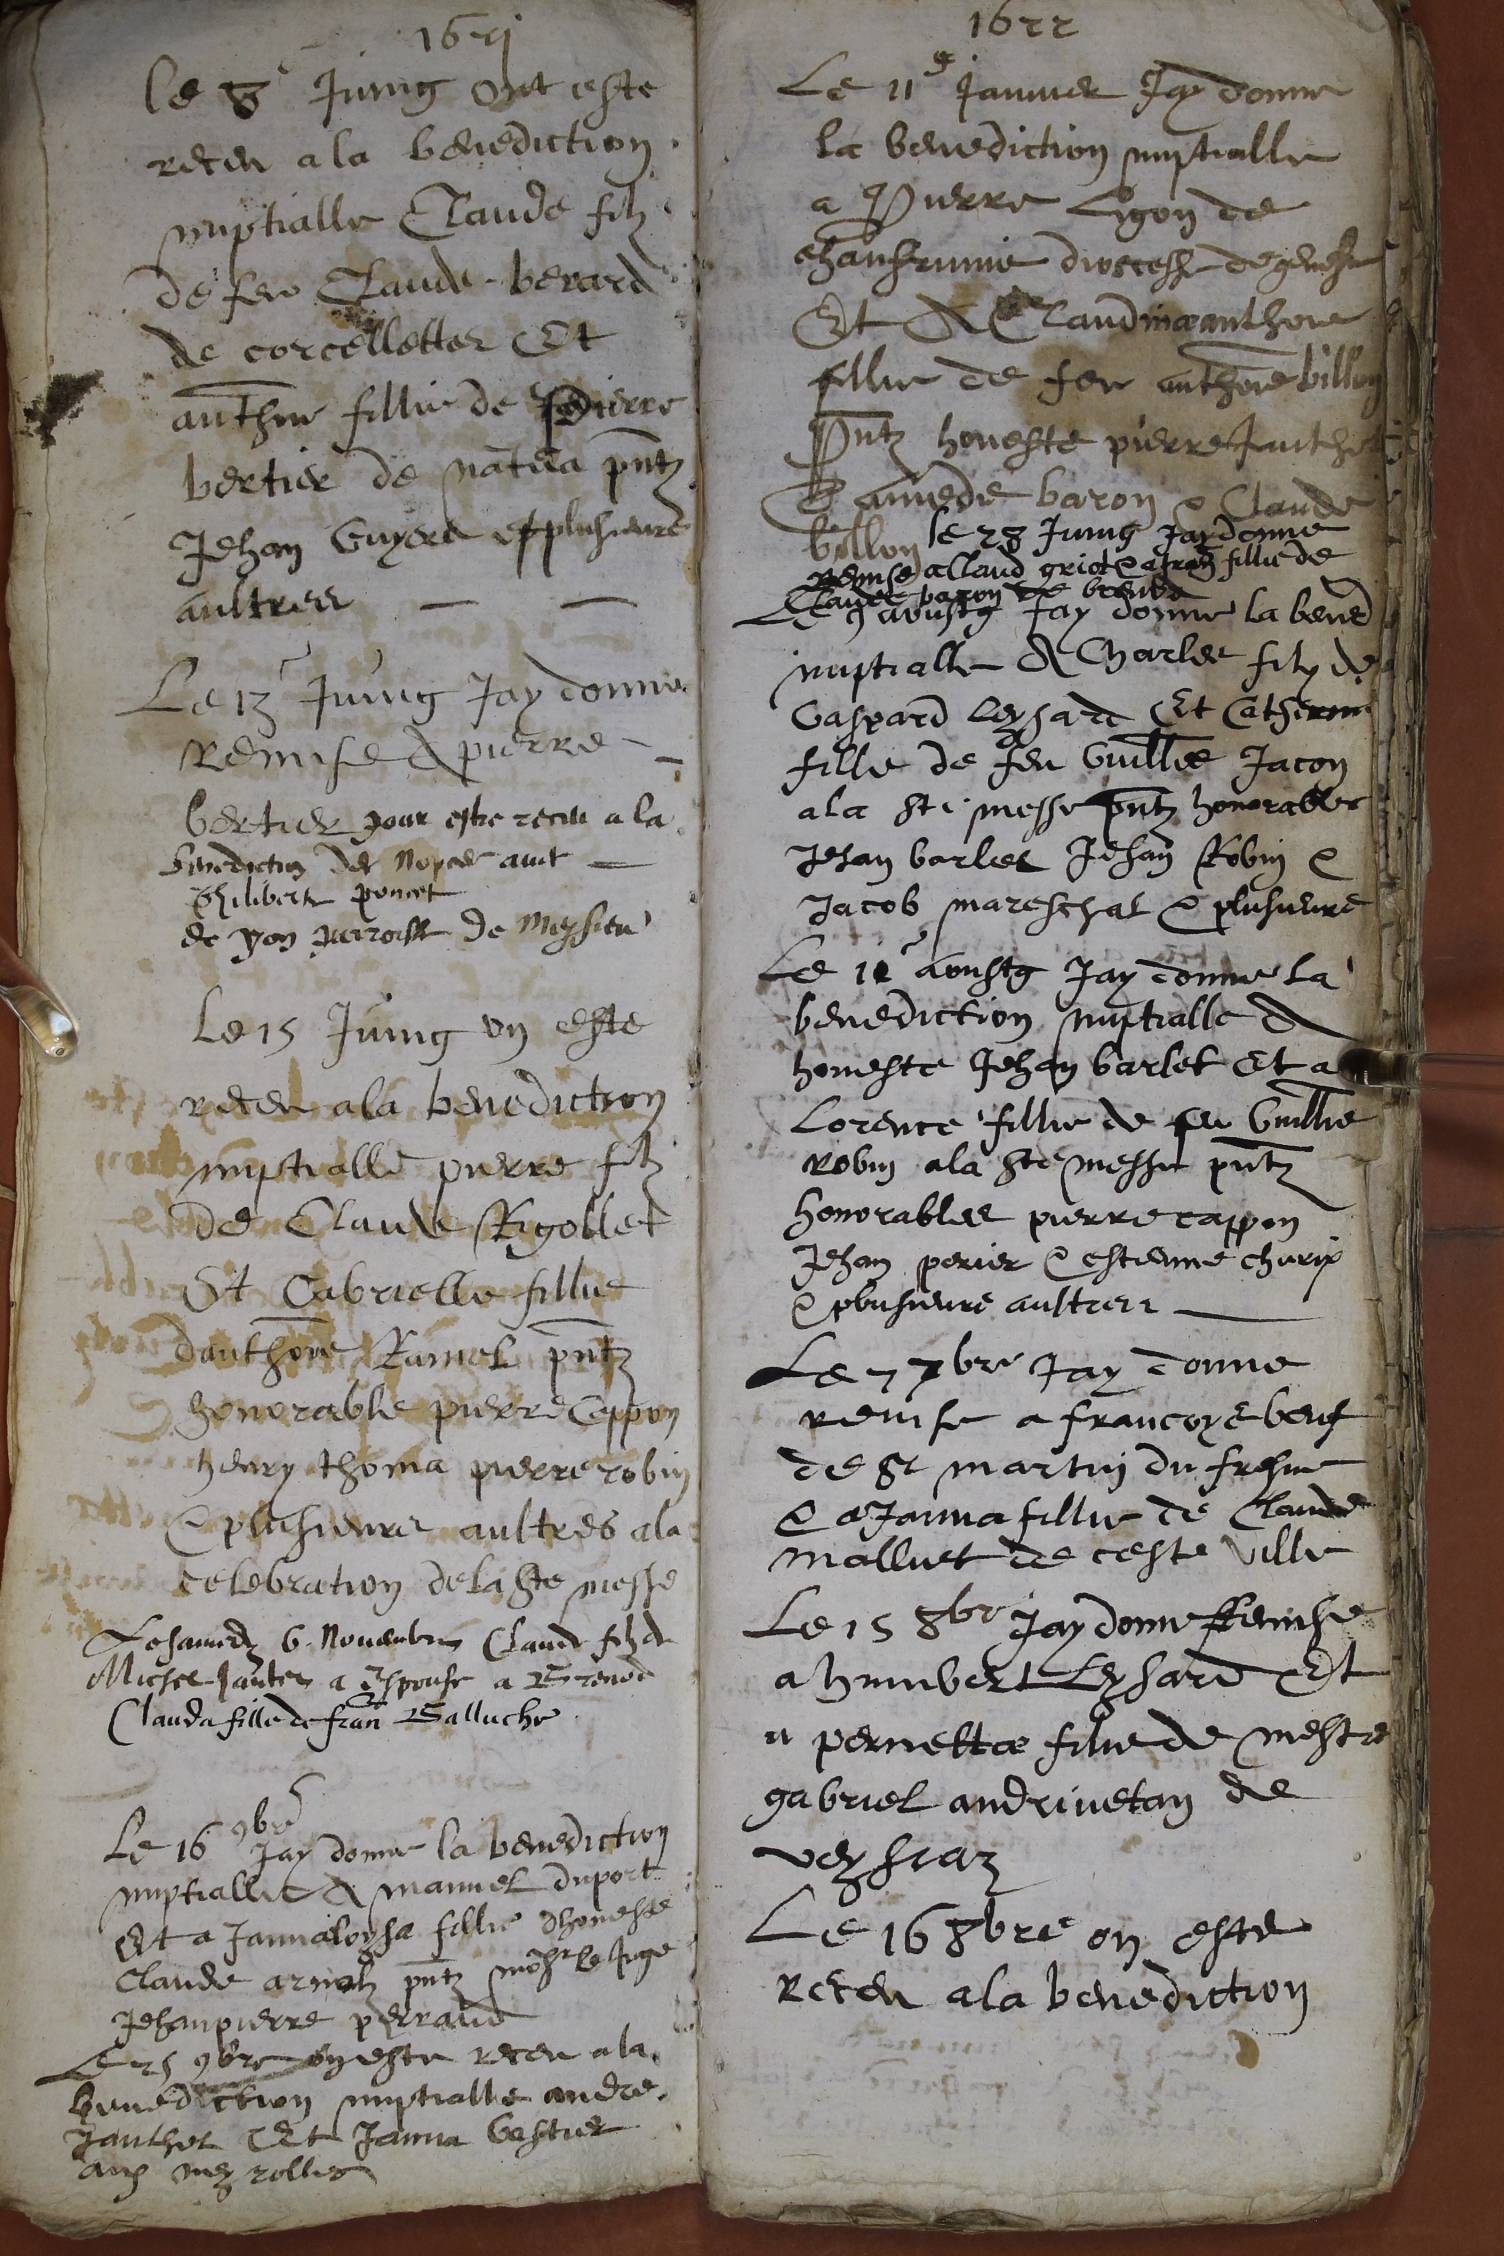 162j
Le 8e Juing Ont este
receu a la benediction
nuptialle Claude filz
de feu Claude berard
de corcellettes Et
anthoe fillie de Pierre
bertier de natua pntz
Jehan Guyere et plusieurs
aultres
Le 13e Juing Jay donne
Remise A pierre
bertier pour estre receu a la
benediction des Nopces avec
Philiberte poncet
de parroisse de Meysieu
Le 15 Juing on este
receu a la benediction
nuptialle pierre filz
de Claude Rigollet
Et Gabrielle fillie
danthoine Ramel pntz
honorable pierre Cappon
henry thoma pierre robin
& plusieurs aultres a la
celebration de la Ste messe
Le samedy 6 Novembre Claude filz de
Michel Jantet a Espouse a Brenod
Clauda fille de fran Balluche
Le 16 9bre Jay donne la benediction
nuptialle A manuel duport
Et a Janna loysa fillie dhoneste
Claude armetz pntz monsr le Juge
Jehan pierre perraud
Le 25 9bre on este receu a la
benediction nuptialle andre
Janthet Et Janna Gestier
aux meyrolles
1622
Le 11e Janvier Jay donne
la benediction nuptialle
a Pierre Ligon de
diocesse de geneve
Et A Claudina anthoie
fillie de feu anthoine billon
Pntz honeste pierre Janthet
amede baron & Claude
billon
le 28 Juing Jay donne
Remise a Claud griot & a fran fillie de
Claude baron de brenod
Le 9 aoustg Jay donne la bened
nuptialle A Charles filz de
Gaspard leysard Et Catherine
fillie de feu Guillme Jacon
a la Ste messe pntz honorables
Jehan barlet Jehan Robin &
Jacob mareschal & plusieurs
Le 11e aoustg Jay donne la
benediction nuptialle A
honeste Jehan barlet Et a
Lorence fillie de feu Guillme
robin a la Ste messe pntz
honorables pierre cappon
Jehan perier & estienne churix
& plusieurs aultres
Le 7 7bre Jay donne
remise a francoys beuf
de St martin du fresne
& a Janna fillie de Claude
malliet de ceste ville
Le 15 8bre Jay donne Remise
a humbert Leysard Et
a pernetta fillie de mestre
gabriel andrivetan de
veysiaz
Le 16 8bre on este
Receu a la benediction